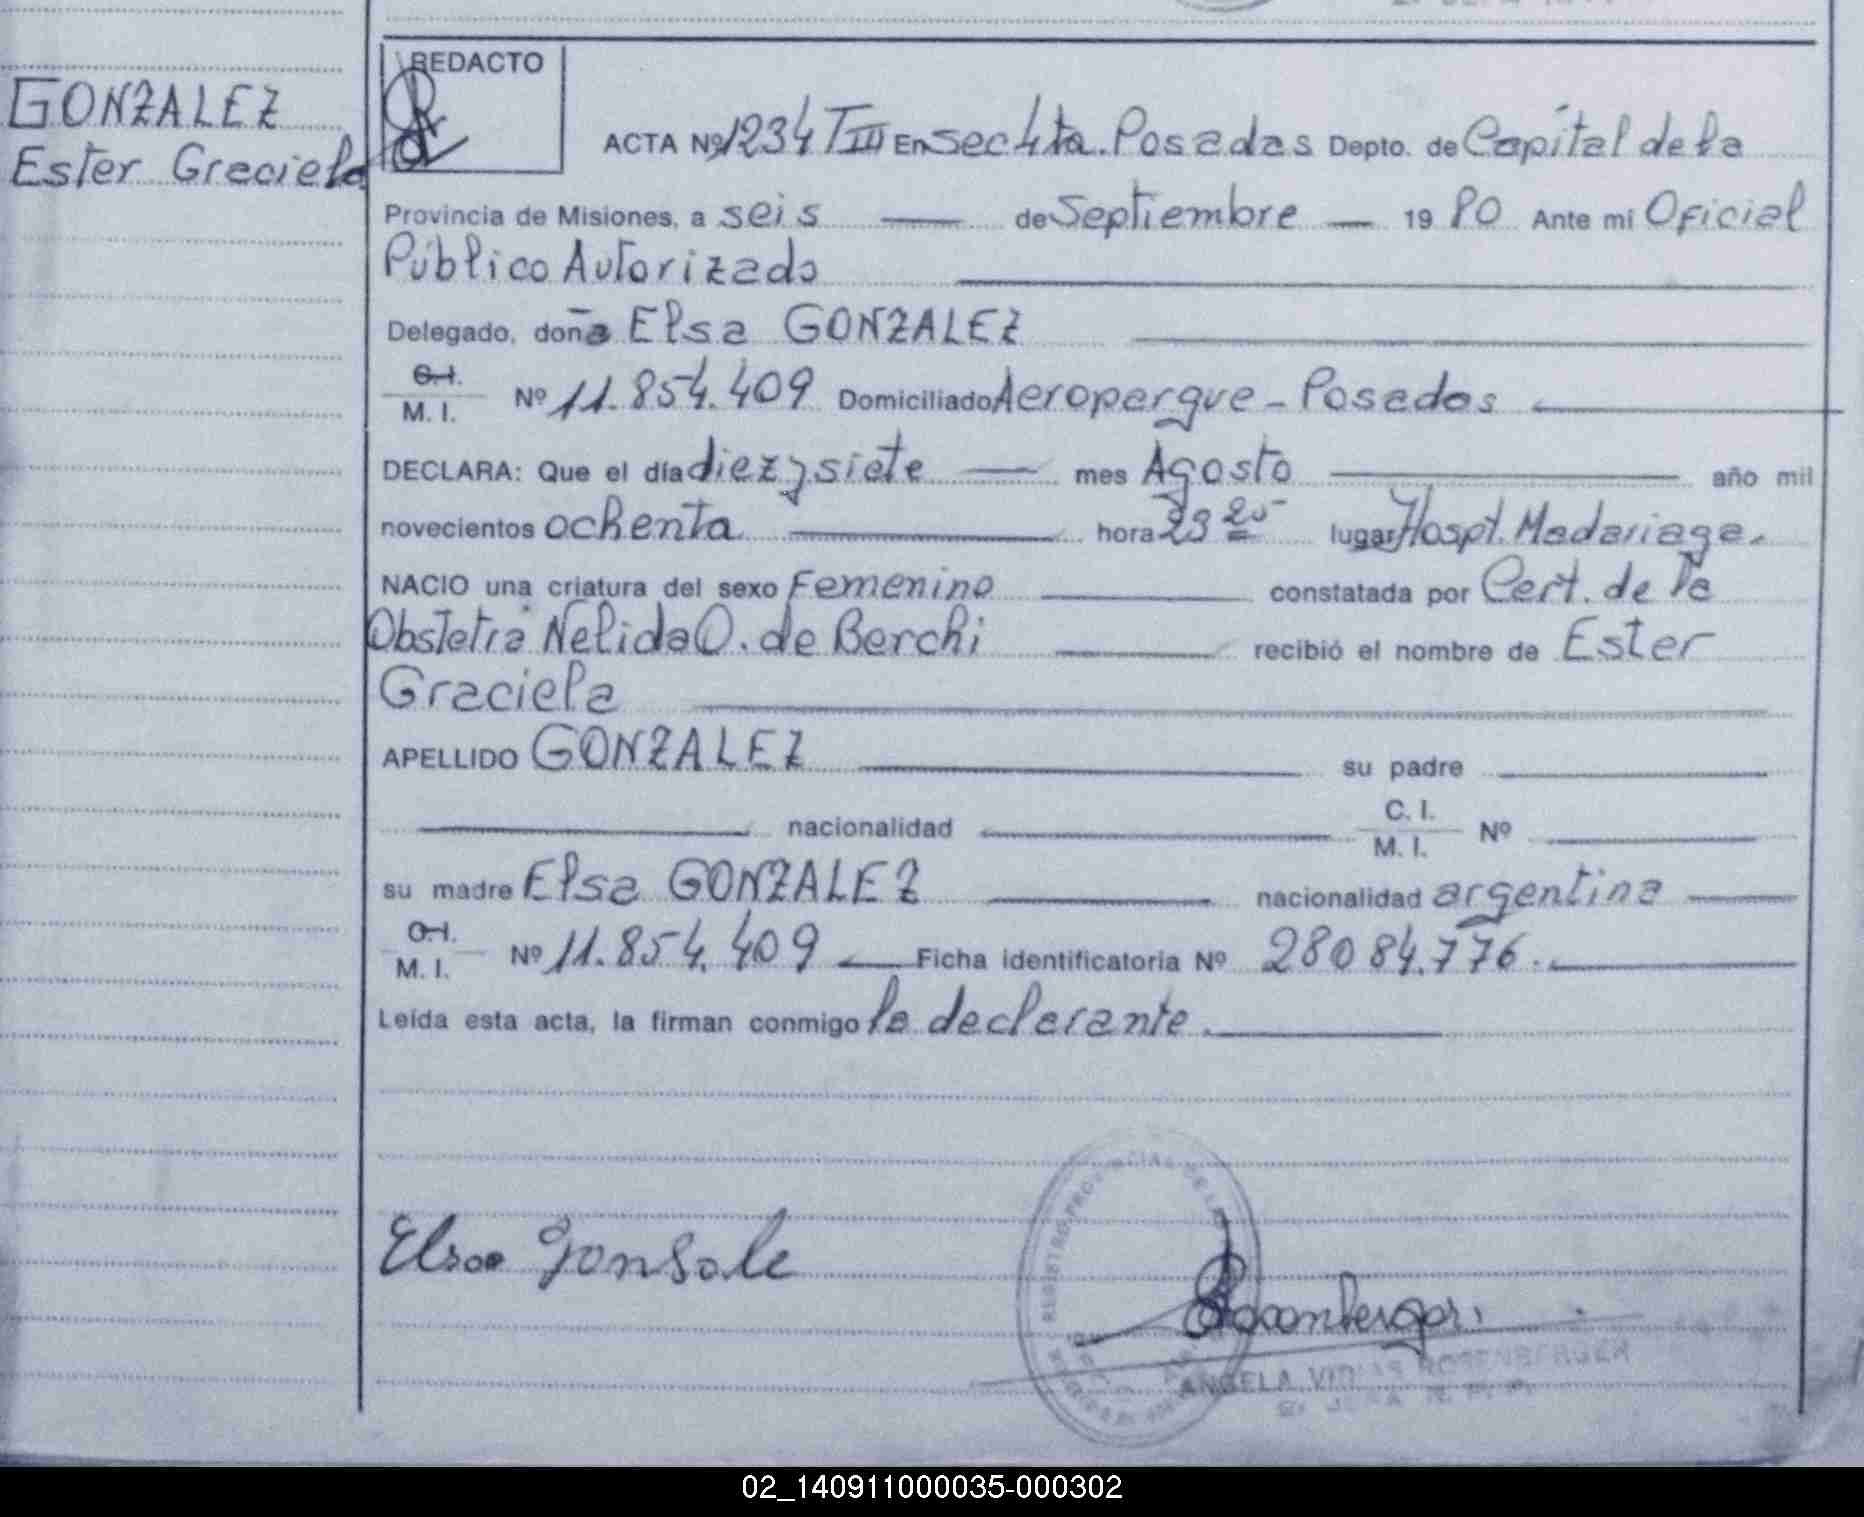 GONZALEZ
Ester Graciela
REDACTO
ACTA Nº 1234 TIII En Sec 4ta. Posadas Depto. de Capital de la
Provincia de Misiones, a seis de Septiembre 19 80 Ante mi Oficial
Público Autorizado
Delegado, doña Elsa GONZALEZ
C.I.
M. I. Nº 11.854.409 Domiciliado Aeroparque - Posadas
DECLARA: Que el día diez y siete mes Agosto año mil
novecientos ochenta hora 23 20 lugar Hospt. Madariaga.
NACIO una criatura del sexo Femenino constatada por Cert. de la
Obstetra Nelida O. de Berchi recibió el nombre de Ester
Graciela
APELLIDO GONZALEZ su padre
nacionalidad C. I.
M. I. Nº
su madre Elsa GONZALEZ nacionalidad argentina
C.I.
M. I. Nº 11.854.409 Ficha identificatoria Nº 28084.776.
Leída esta acta, la firman conmigo la declarante.
Elsa Gonsale
REGISTRO PROVINCIAL DE LAS
ANGELA ROSENBERGER
02_140911000035-000302